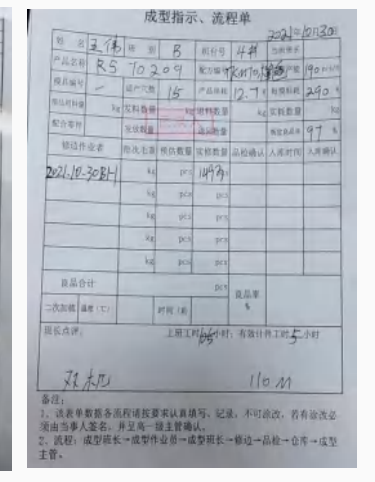 成型指示、流程单
2021年10月30日
姓 名 王伟 班 别 B 机台号 4# 当班班长
产品名称 R5 70209 配方编号 190
模具编号 — 模产穴数 15 产品单重 12.7 290
kg 发料数量 kg 退料数量 kg 实料数量 kg
配合零件 发放数量 97 %
修边作业者 每次毛重 预估数量 实修数量 品检确认 入库时间 入库确认
2021.10-30B1-1 kg pcs pcs
kg pcs pcs
kg pcs pcs
kg pcs pcs
kg pcs pcs
良品合计 pcs 良品率 %
二次加硫 温度(℃) 时间
班长点评: 上班工时 小时;有效计件工时 5 小时
双机 110M
备注:
1、该表单数据各流程请按要求认真填写、记录,不可涂改,若有涂改必
须由当事人签名,并呈高一级主管确认。
2、流程:成型班长→成型作业员→成型班长→修边→品检→仓库→成型
主管。